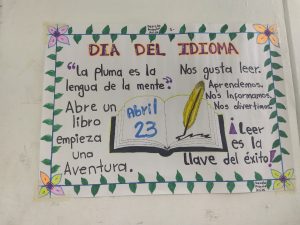 DIA DEL IDIOMA
"La pluma es la
lengua de la mente".
Abre un
libro
empieza
una
Aventura.
Abril
23
Nos gusta leer.
Aprendemos.
Nos Informamos.
Nos divertimos.
¡Leer
es la
llave del éxito!